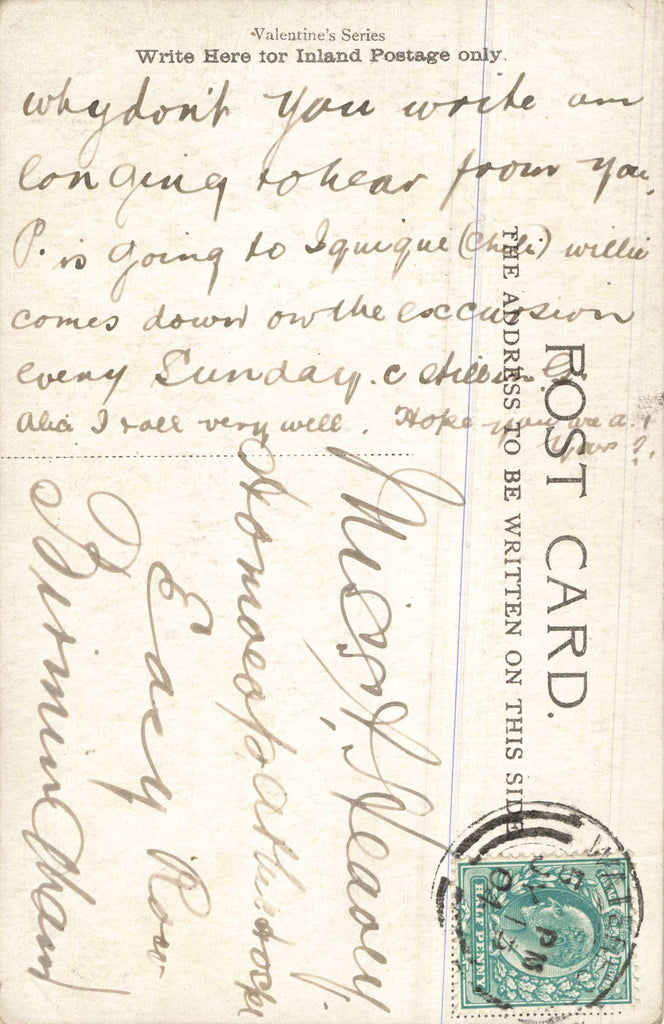 Valentine's Series
Write Here for Inland Postage only.
why don't you write am
longing to hear from you.
P. is going to Iquique (Chili) willie
comes down on the excursion
every Sunday. c
Alice I roll very well. Hope you are a
yours
POST CARD.
THE ADDRESS TO BE WRITTEN ON THIS SIDE
Miss Heavey
Homoeopathic Hosp
Easy Row
Birmingham
PM
JY 13
04
HALF PENNY